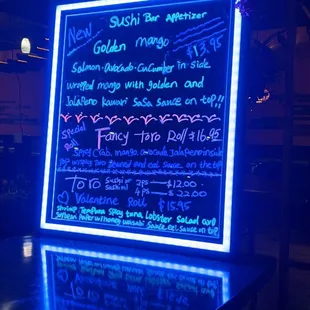 Sushi Bar Appetizer
New
Golden mango $13.95
Salmon. avocado. Cucumber in side
wrapped mango with golden and
Jalapeno sauce on top!!
Special Roll
Fancy Toro Roll $16.95
Spicy Crab. mango. avocado. Jalapeno inside
top toro and eel sauce on the top
Toro sushi or sashimi
2ps — $12.00
4ps — $22.00
Valentine Roll $15.95
shrimp Tempura Spicy tuna, Lobster Salad and
Soybean Paper w/honey wasabi Sauce. eel sauce on top